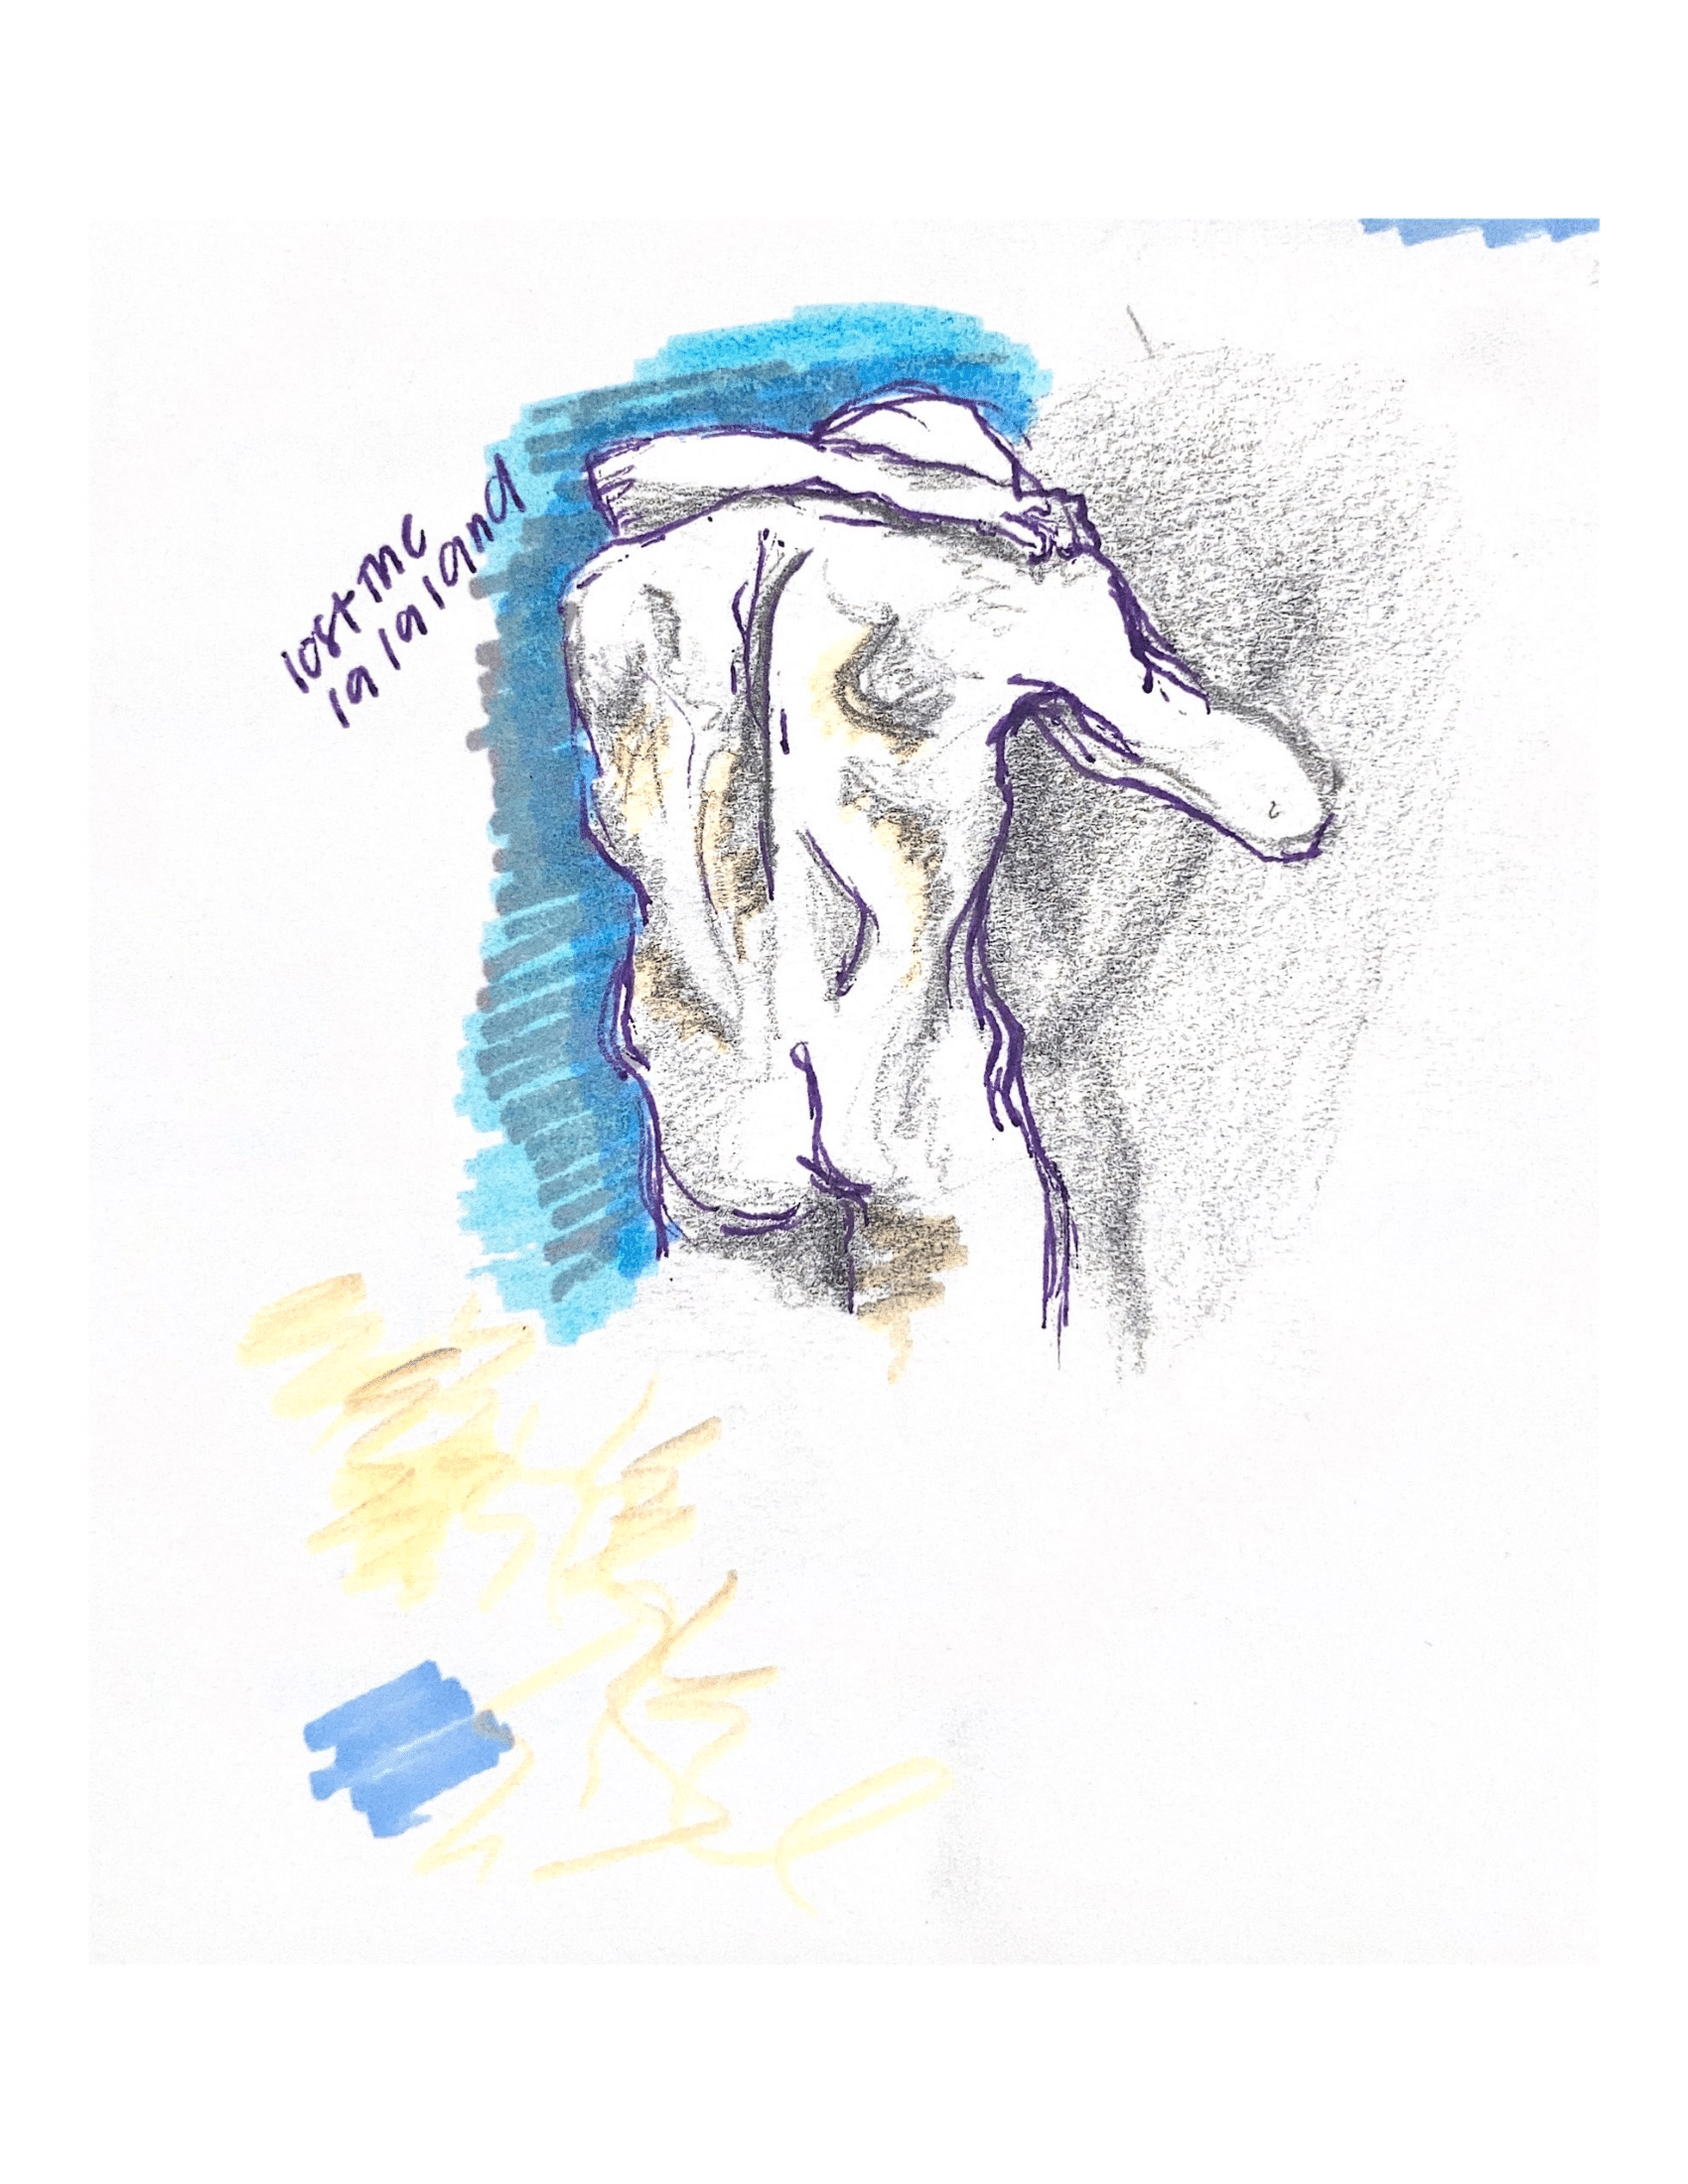 lost the
la la land